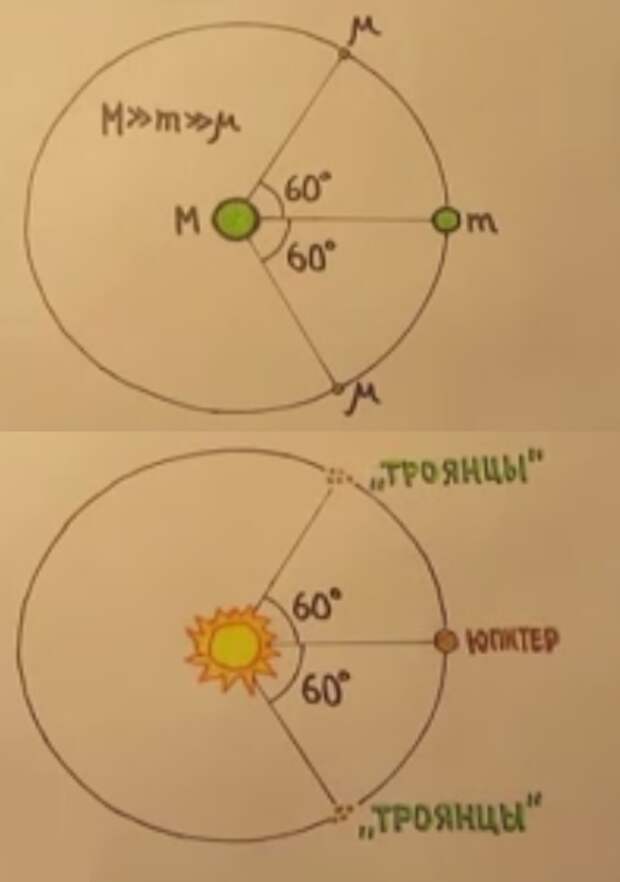 μ
M≫m≫μ
60°
M
m
60°
μ
„ТРОЯНЦЫ“
60°
ЮПИТЕР
60°
„ТРОЯНЦЫ“